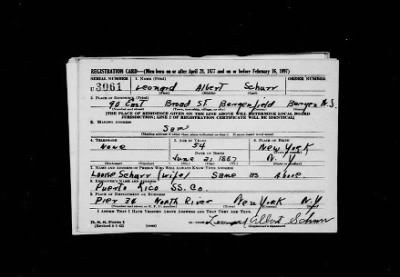 REGISTRATION CARD—(Men born on or after April 28, 1877 and on or before February 16, 1897)
SERIAL NUMBER 1. NAME (Print) ORDER NUMBER
U 3061 Leonard Albert Schurr
(First) (Middle) (Last)
2. PLACE OF RESIDENCE (Print)
90 East Broad St. Bergenfield Bergen N.J.
(Number and street) (Town, township, village, or city) (County) (State)
[THE PLACE OF RESIDENCE GIVEN ON THE LINE ABOVE WILL DETERMINE LOCAL BOARD
JURISDICTION; LINE 2 OF REGISTRATION CERTIFICATE WILL BE IDENTICAL]
3. MAILING ADDRESS
Same
[Mailing address if other than place indicated on line 2. If same insert word same]
4. TELEPHONE 5. AGE IN YEARS 6. PLACE OF BIRTH
None 54 New York
DATE OF BIRTH
June 21 1887 N. Y
7. NAME AND ADDRESS OF PERSON WHO WILL ALWAYS KNOW YOUR ADDRESS
Louise Schurr (wife) Same as Above
8. EMPLOYER'S NAME AND ADDRESS
Puerto Rico SS. Co.
9. PLACE OF EMPLOYMENT OR BUSINESS
Pier 36 North River New York N.Y
(Number and street or R. F. D. number) (Town) (County) (State)
I AFFIRM THAT I HAVE VERIFIED ABOVE ANSWERS AND THAT THEY ARE TRUE.
D. S. S. Form 1
(Revised 4-1-42)
Leonard Albert Schurr